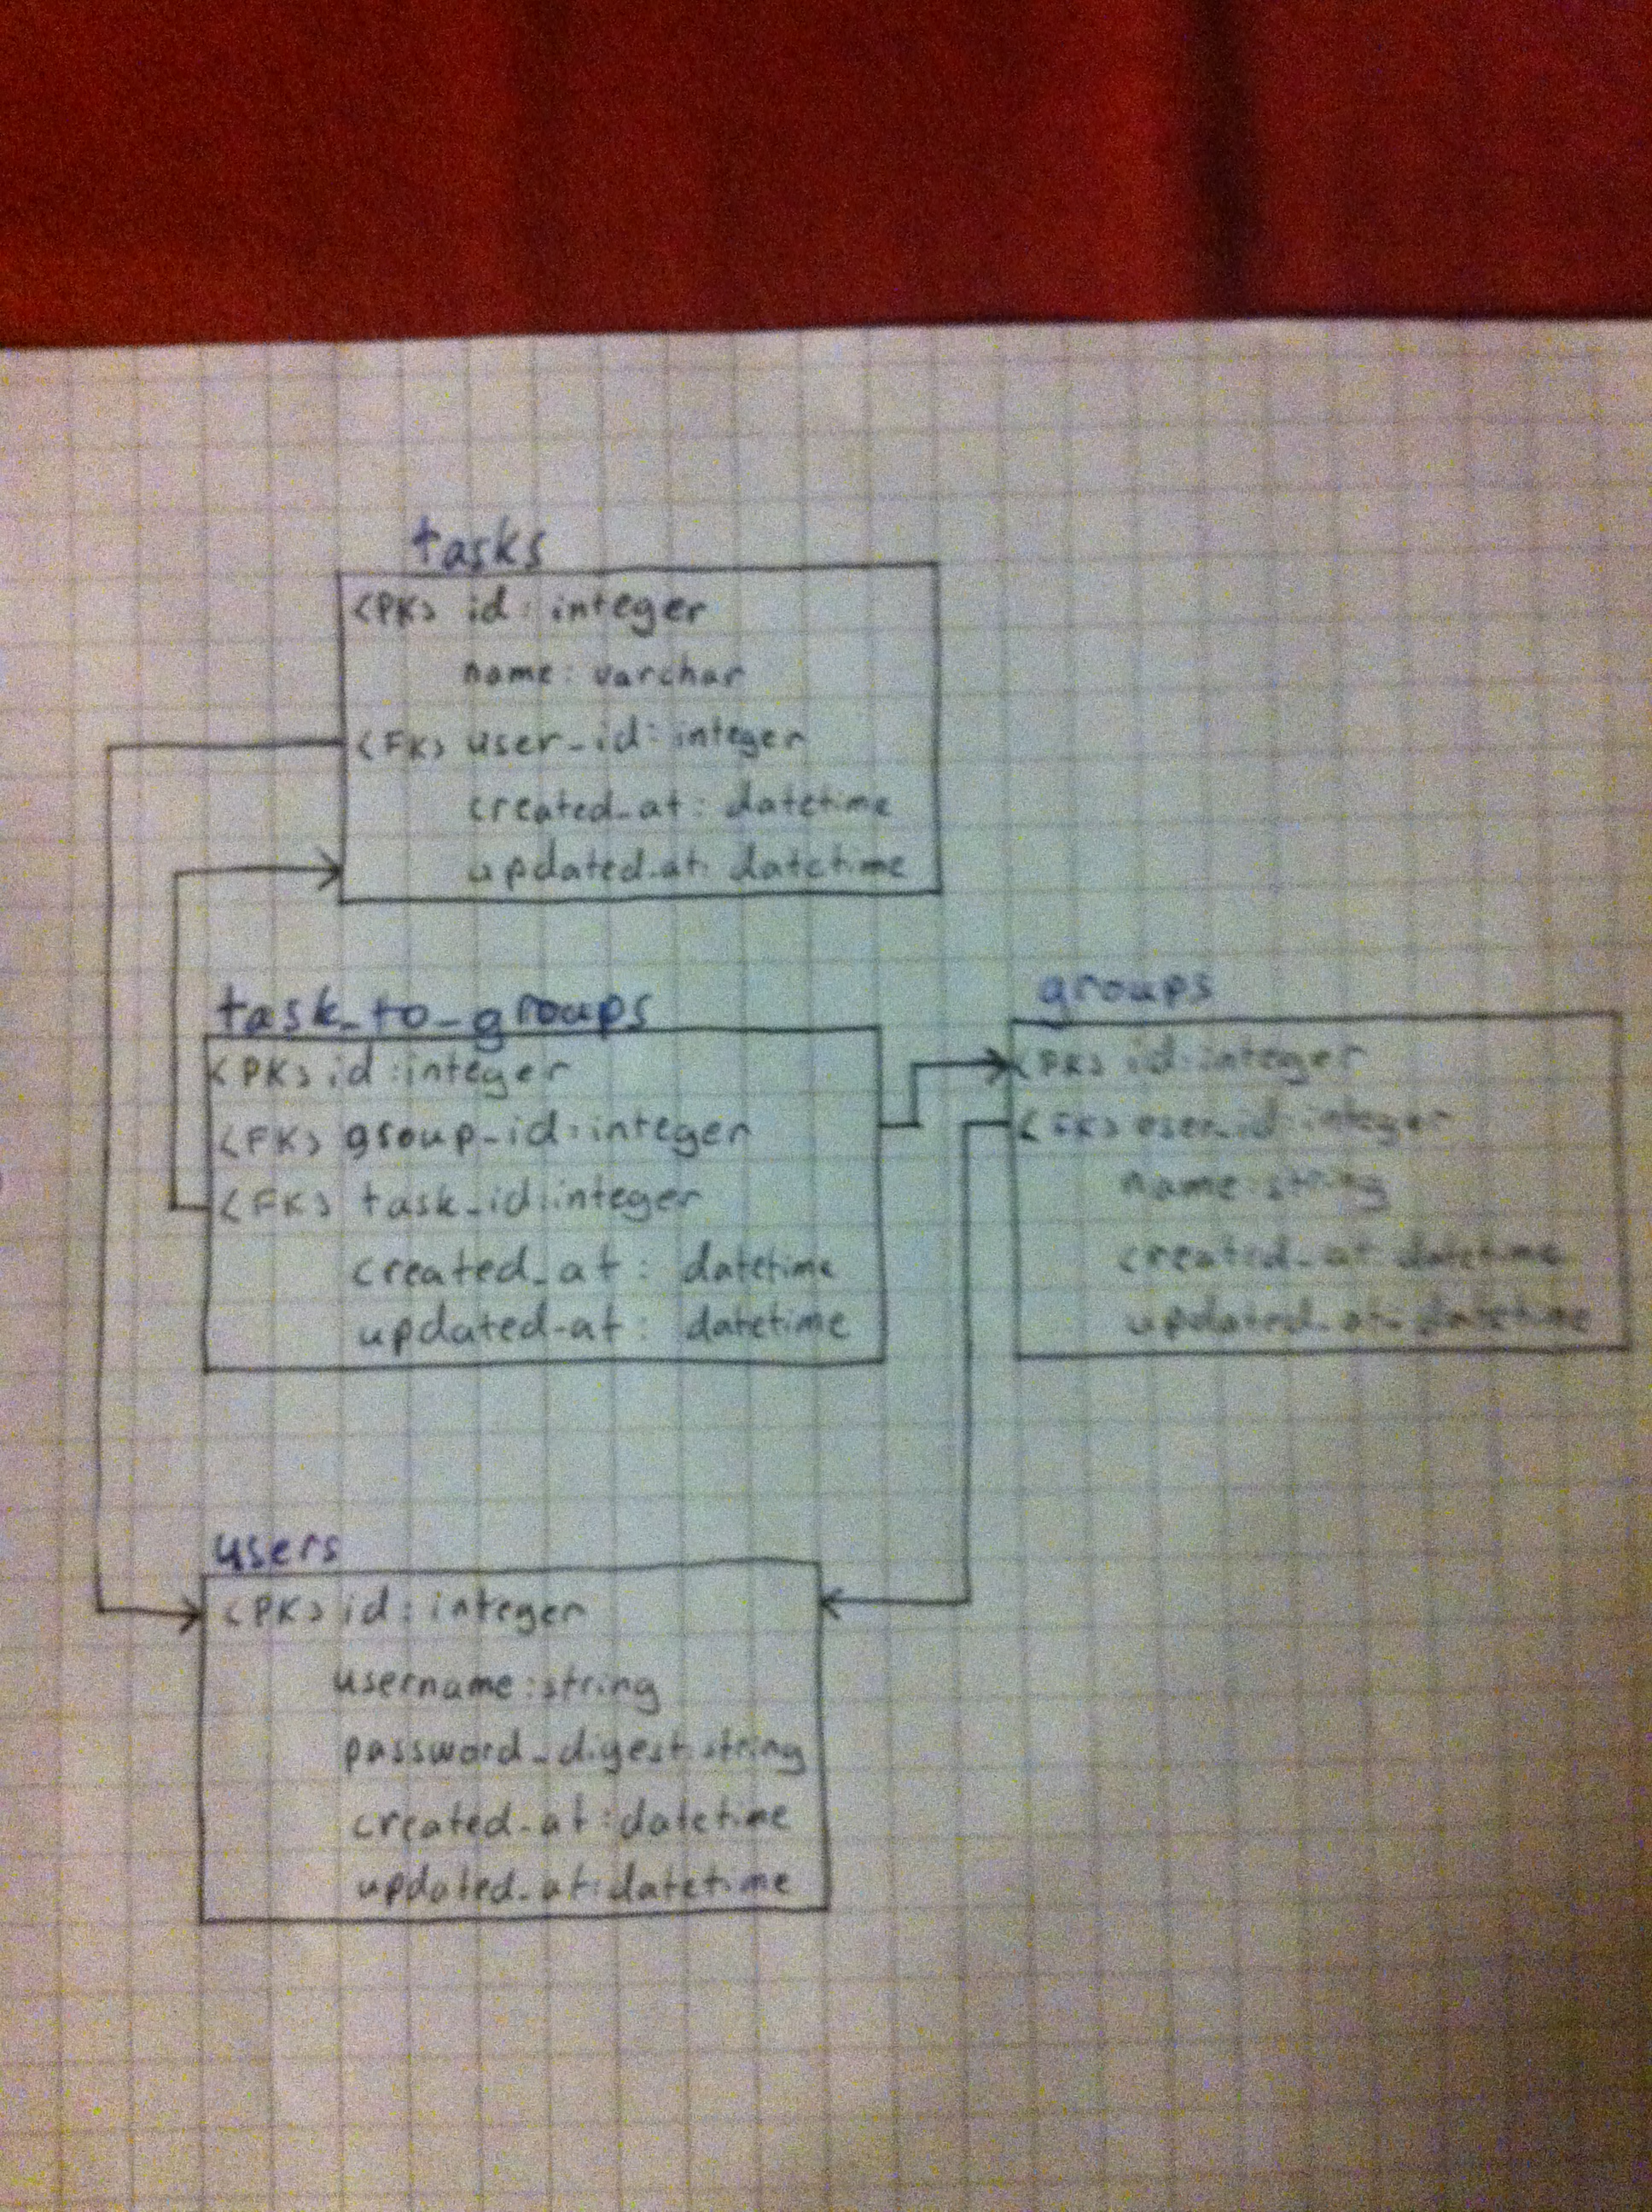 tasks
<PK> id: integer
name: varchar
<FK> user_id: integer
created_at: datetime
updated_at: datetime
task_to_groups
<PK> id: integer
<FK> group_id: integer
<FK> task_id: integer
created_at: datetime
updated_at: datetime
groups
<PK> id: integer
<FK> user_id: integer
name: string
created_at: datetime
updated_at: datetime
users
<PK> id: integer
username: string
password_digest: string
created_at: datetime
updated_at: datetime